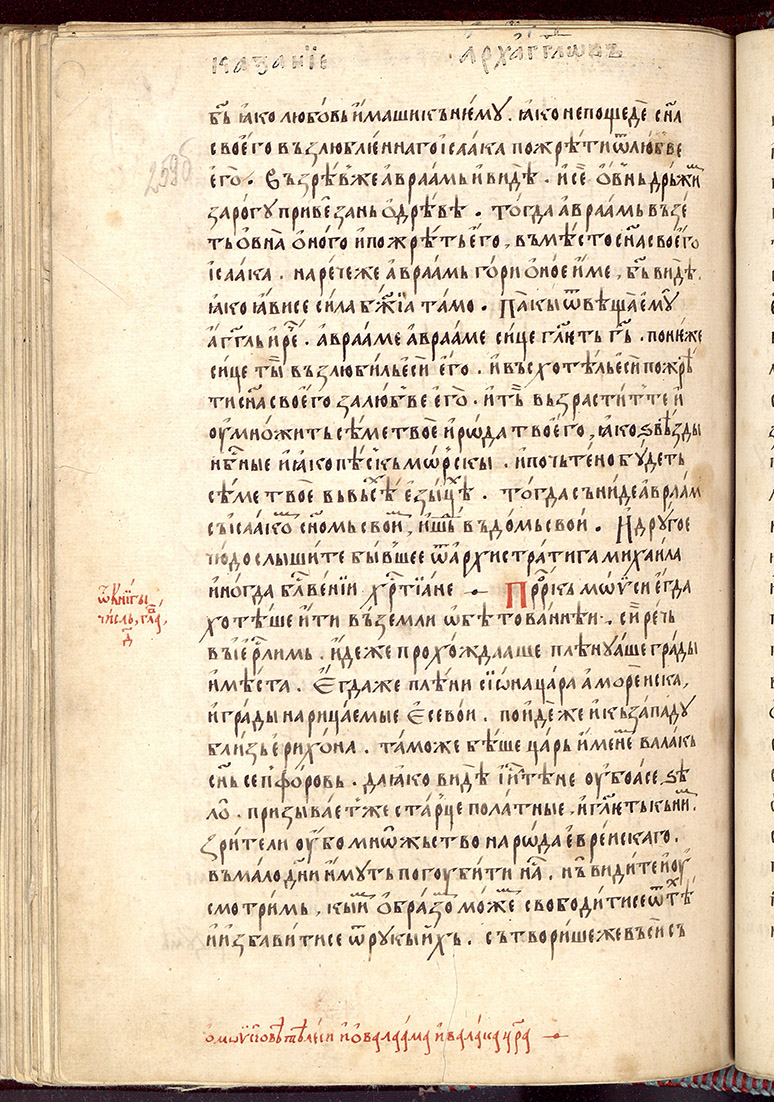 казанїе архⷭ҇аг҃гловъ
бь҃ ꙗко любовь имаши къ нѥму. ꙗко не пощедѐ сн҃а
своѥго възлюблѥннаго ісаака пожрѣти ѿ любьве
ѥго. Възрѣв же авраамь и видѣ. и сѐ ѻвнь дрьжим
за рогу привезань ѻ дрѣвѣ. тогда авраамь възе
ть овна ѻного и пожрѣть ѥго, въ мѣсто сн҃а своѥго
ісаака. нарече же авраамь гори ѻноѥ име, бь҃ видѣ.
ꙗко ꙗви се сила бж҃їа тамо. Пакы ѿвѣща ѥмꙋ
агг҃ль и реⷱ҇. аврааме аврааме сице гл҃ѥть гь҃. понѥже
сице ты възлюбиль ѥси ѥго. и въсхотѣль ѥси пожрѣ
ти сн҃а своѥго за любьве ѥго. и ть҃ възрастит те и
ѹмножить сѣме твоѐ и рѡда твоѥго, ꙗко ѕвѣзды
нбⷭ҇ные и ꙗко пѣськь мѡрскы. и почьтено бꙋдеть
сѣме твоѐ въ въсⷯѣ ѥзыцⷯѣ. тогда съниде авраам
съ ісаакоⷨ сн҃омь своиⷨ, и шⷣь въ домь свои. И другоѥ
чюдо слышите бывшеѥ ѿ архистратига михаила
иногда блⷭ҇вении хрⷭ҇тїане Прⷪ҇ркъ мѡѵси ѥгда
хотѣше ити въ земли ѡбѣтованнѣи. си рѣчь
въ ѥрⷭ҇лимь. идеже прохождааше плѣнꙋаше грады
и мѣста. Ѥгда же плѣни сїѡна цара аморѐиска,
и грады нарицаемые ѥсевѡн. поиде же и къ западу
близь ѥрихѡна. тамо же бѣше царь именеⷨ валакь
сн҃ь сепфоровь. да ꙗко видѣ ѹбоа се ѕѣ
лѡ. призываѥт же старце полатные, и гл҃ѥть къ ниⷨ.
Зрите ли ѹбо мнѡжьство нарѡда ѥврѐискаго.
въ мало дн҃и имуть погѹбити наⷭ. нь видите и ѹ
смотримь, кыиⷨ ѻбразоⷨ можеⷨ свободити се ѿ тѣⷯ
и избавити се ѿ рукы ихь. сътворише же въси съ
ѿ книгы
числь, глаⷡ,
д҃
ѻ мѡѵсїовѣ тѣлеси и ѻ валаама и валака цр҃а